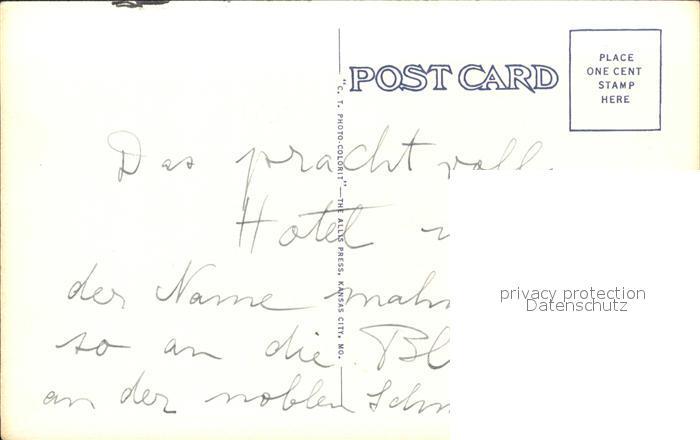 POST CARD
PLACE
ONE CENT
STAMP
HERE
"C. T. PHOTO-COLORIT"—THE ALLIS PRESS, KANSAS CITY, MO.
Das prachtvoll
Hotel
der Name mahn
so an die Bl
an der noblen Schm
privacy protection
Datenschutz